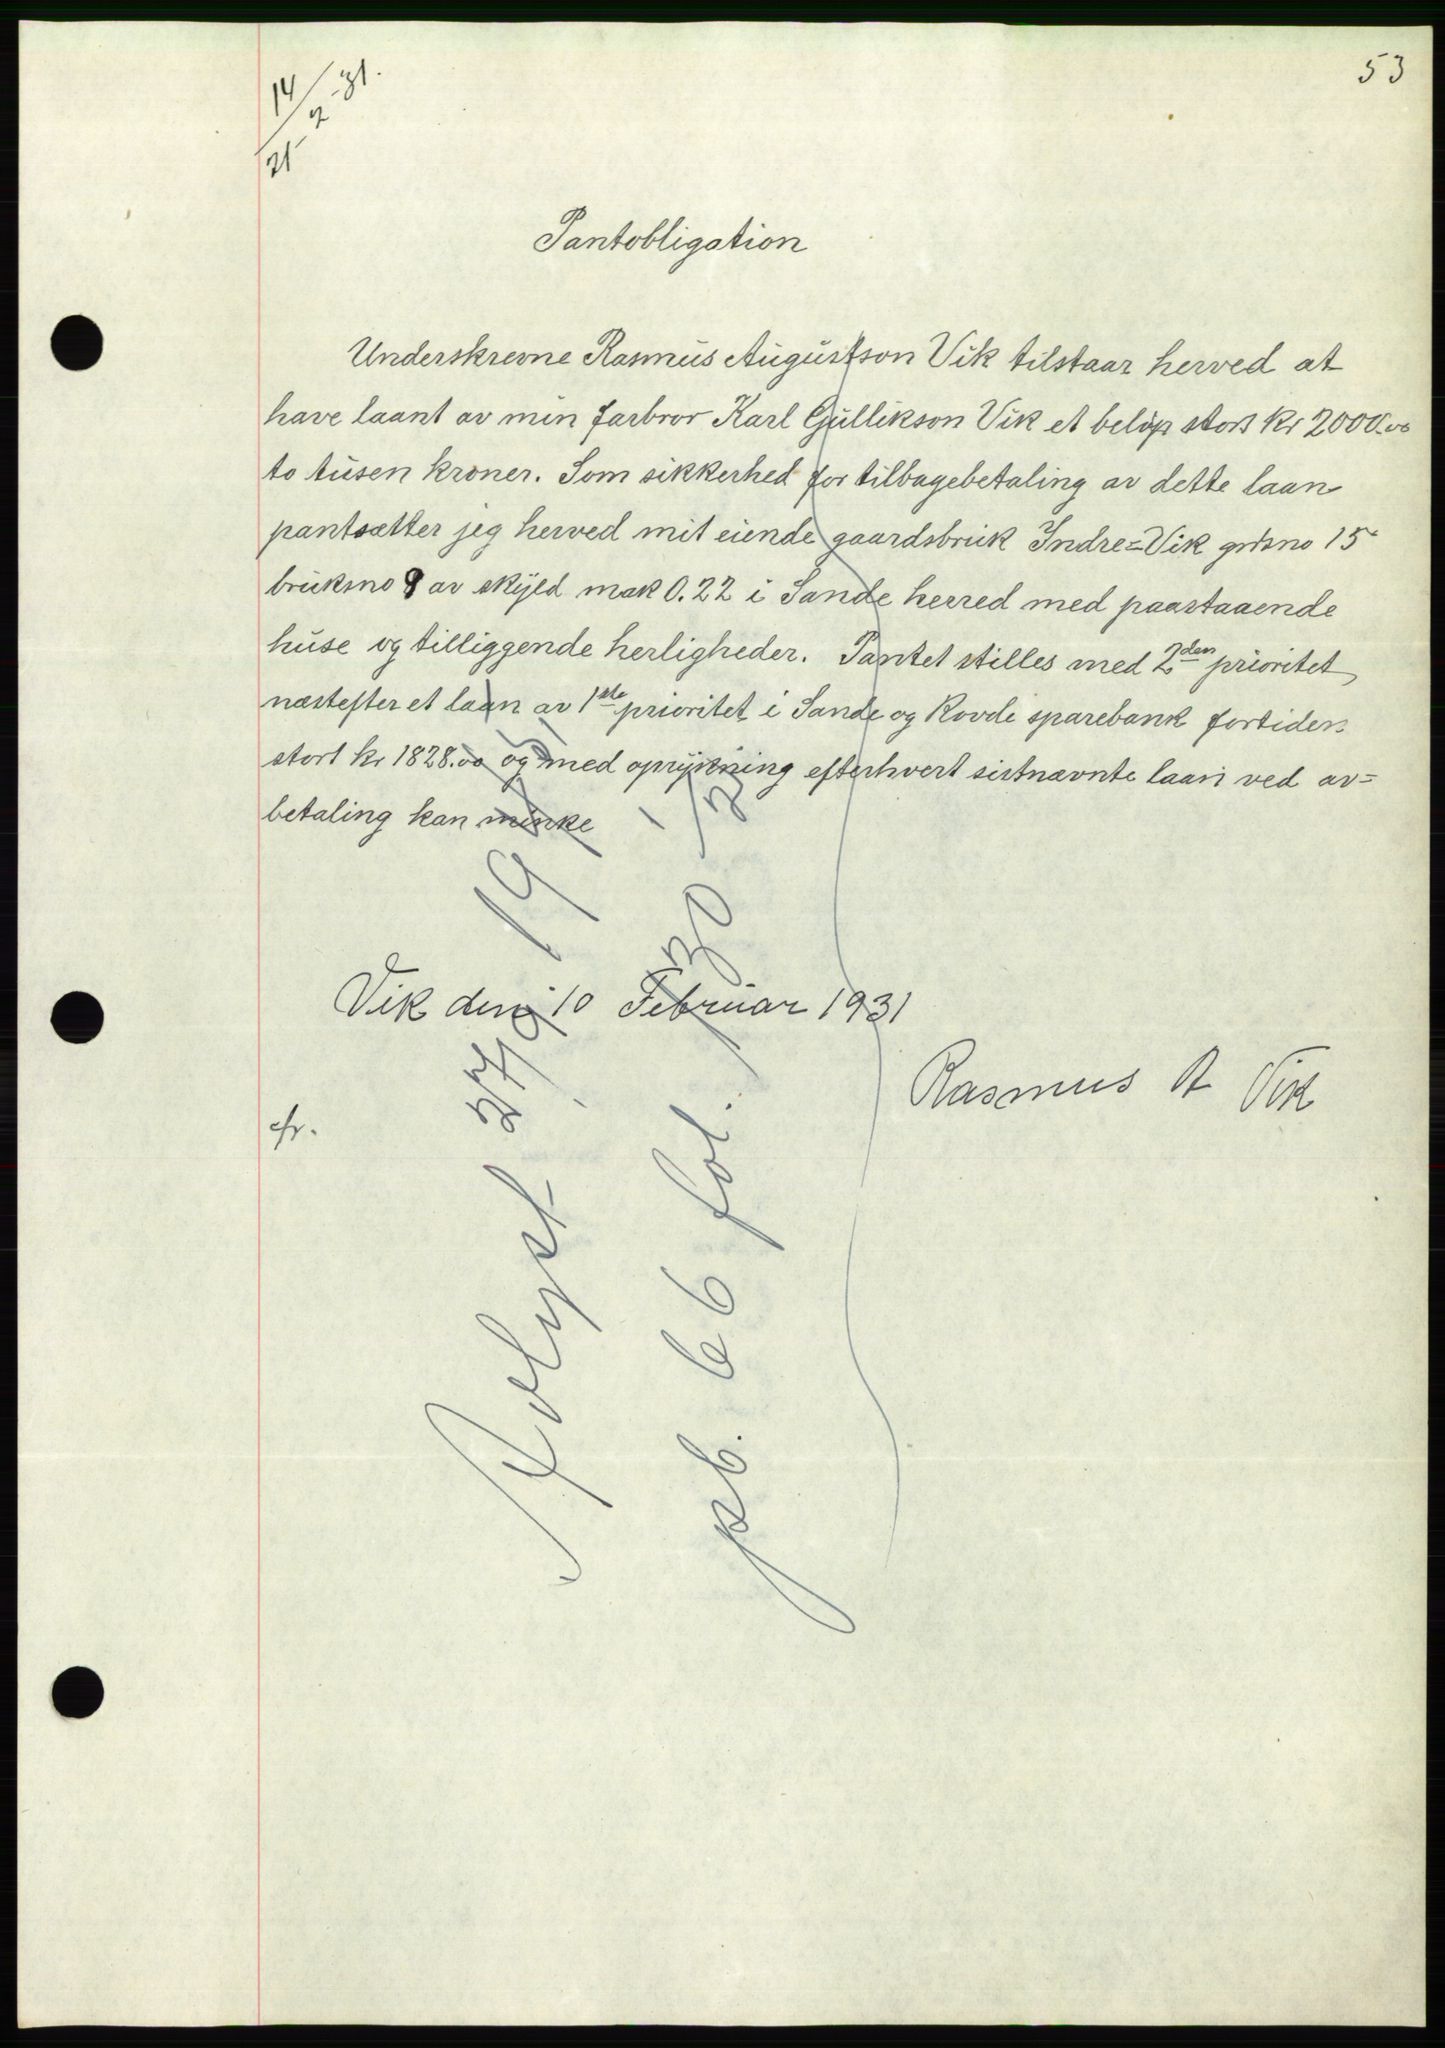 53
14/2-31.
Pantobligation
Underskrevne Rasmus Augustson Vik tilstaar herved at
have laant av min farbror Karl Gullikson Vik et beløp stort kr 2000.00
to tusen kroner. Som sikkerhed for tilbagebetaling av dette laan
pantsætter jeg herved mit eiende gaardsbruk Indre=Vik grdsno 15
bruksno 9 av skyld mark 0.22 i Sande herred med paastaaende
huse og tilliggende herligheder. Pantet stilles med 2den prioritet
næstefter et laan av 1ste prioritet i Sande og Rovde sparebank fortiden
stort kr 1828.00 og med oprykning efterhvert sistnævnte laan ved av=
betaling kan minke
Vik den 10 Februar 1931
Rasmus A Vik
cfr.
Avlyst 27/9 19
pb. 66 fol.